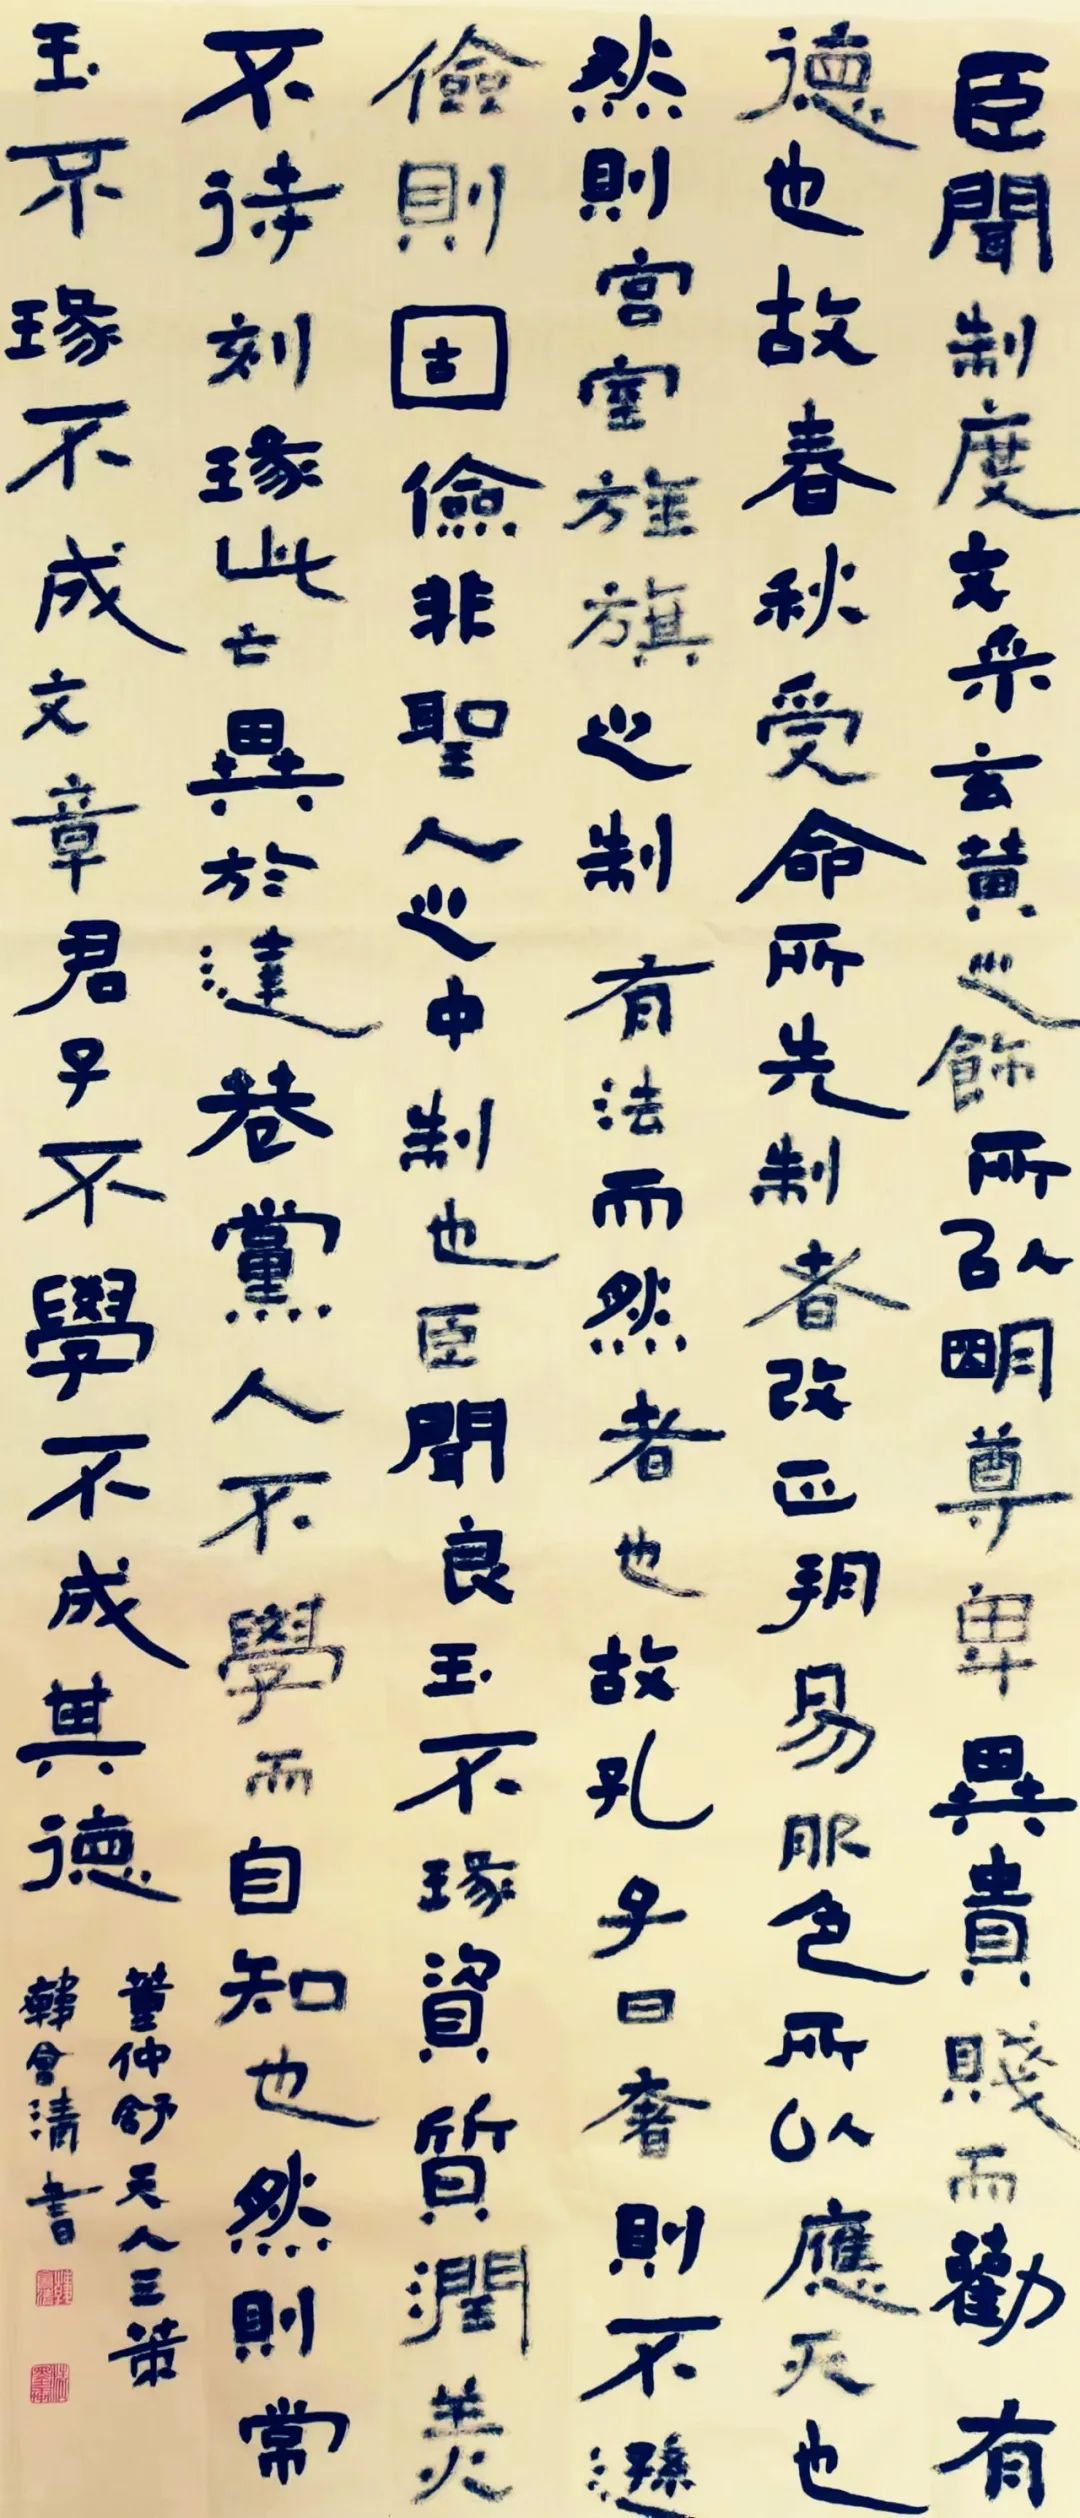 臣聞制度文采玄黃之飾所以明尊卑異貴賤而勸有
德也故春秋受命所先制者改正朔易服色所以應天也
然則宮室旌旗之制有法而然者也故孔子曰奢則不遜
儉則固儉非聖人之中制也臣聞良玉不瑑資質潤美
不待刻瑑此亡異於達巷黨人不學而自知也然則常
玉不瑑不成文章君子不學不成其德
董仲舒天人三策
韓會清書